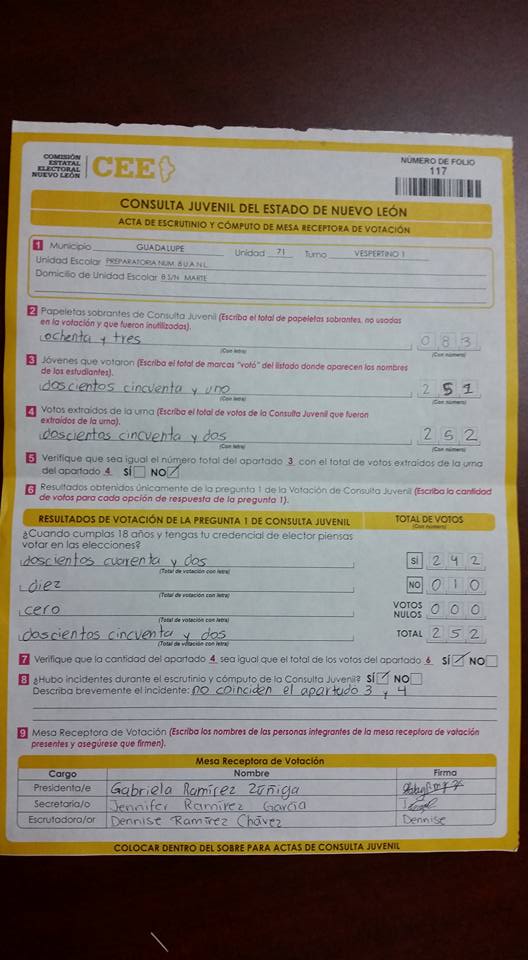 COMISIÓN
ESTATAL
ELECTORAL
NUEVO LEÓN
CEE
NÚMERO DE FOLIO
117
CONSULTA JUVENIL DEL ESTADO DE NUEVO LEÓN
ACTA DE ESCRUTINIO Y CÓMPUTO DE MESA RECEPTORA DE VOTACIÓN
1 Municipio GUADALUPE Unidad 71 Turno VESPERTINO 1
Unidad Escolar PREPARATORIA NUM. 8 U.A.N.L.
Domicilio de Unidad Escolar 8 S/N MARTE
2 Papeletas sobrantes de Consulta Juvenil (Escriba el total de papeletas sobrantes, no usadas
en la votación y que fueron inutilizadas).
ochenta y tres 0 8 3
(Con letra) (Con número)
3 Jóvenes que votaron (Escriba el total de marcas "votó" del listado donde aparecen los nombres
de los estudiantes).
doscientos cincuenta y uno 2 5 1
(Con letra) (Con número)
4 Votos extraídos de la urna (Escriba el total de votos de la Consulta Juvenil que fueron
extraídos de la urna).
doscientos cincuenta y dos 2 5 2
(Con letra) (Con número)
5 Verifique que sea igual el número total del apartado 3 con el total de votos extraídos de la urna
del apartado 4 SÍ NO
6 Resultados obtenidos únicamente de la pregunta 1 de la Votación de Consulta Juvenil (Escriba la cantidad
de votos para cada opción de respuesta de la pregunta 1).
RESULTADOS DE VOTACIÓN DE LA PREGUNTA 1 DE CONSULTA JUVENIL TOTAL DE VOTOS
(Con número)
¿Cuando cumplas 18 años y tengas tu credencial de elector piensas
votar en las elecciones?
doscientos cuarenta y dos SÍ 2 4 2
(Total de votación con letra)
diez NO 0 1 0
(Total de votación con letra)
cero VOTOS NULOS 0 0 0
(Total de votación con letra)
doscientos cincuenta y dos TOTAL 2 5 2
(Total de votación con letra)
7 Verifique que la cantidad del apartado 4 sea igual que el total de los votos del apartado 6 SÍ NO
8 ¿Hubo incidentes durante el escrutinio y cómputo de la Consulta Juvenil? SÍ NO
Describa brevemente el incidente: no coinciden el apartado 3 y 4
9 Mesa Receptora de Votación (Escriba los nombres de las personas integrantes de la mesa receptora de votación
presentes y asegúrese que firmen).
Mesa Receptora de Votación
Cargo Nombre Firma
Presidenta/e Gabriela Ramírez Zúñiga
Secretaria/o Jennifer Ramírez García
Escrutadora/or Dennise Ramírez Chávez Dennise
COLOCAR DENTRO DEL SOBRE PARA ACTAS DE CONSULTA JUVENIL